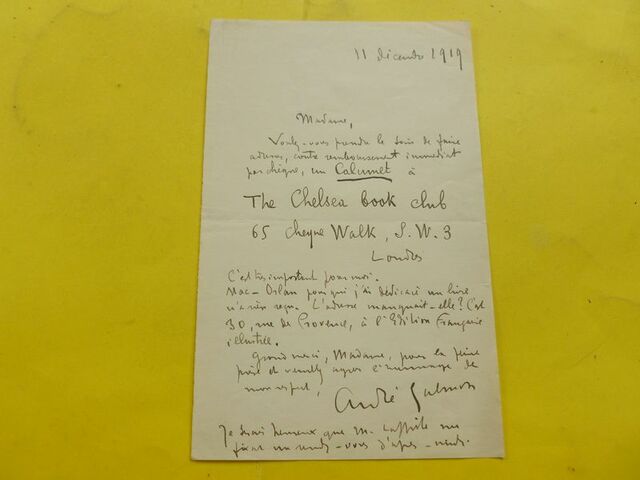 11 décembre 1919
Madame,
Voulez-vous prendre le soin de faire
adresser, contre remboursement immédiat
par chèque, un Calumet à
The Chelsea book club
65 cheyne Walk, S.W.3
Londres
C'est très important pour moi.
Mac-Orlan pour qui j'ai dédicacé un livre
n'a rien reçu. L'adresse manquait-elle? C'est
30, rue de Provence, à l'Edition Française
illustrée.
Grand merci, Madame, pour la peine
prise et veuillez agréer l'hommage de
mon respect,
André Salmon
Je serais heureux que M. Laffitte me
fixât un rendez-vous d'après-midi.